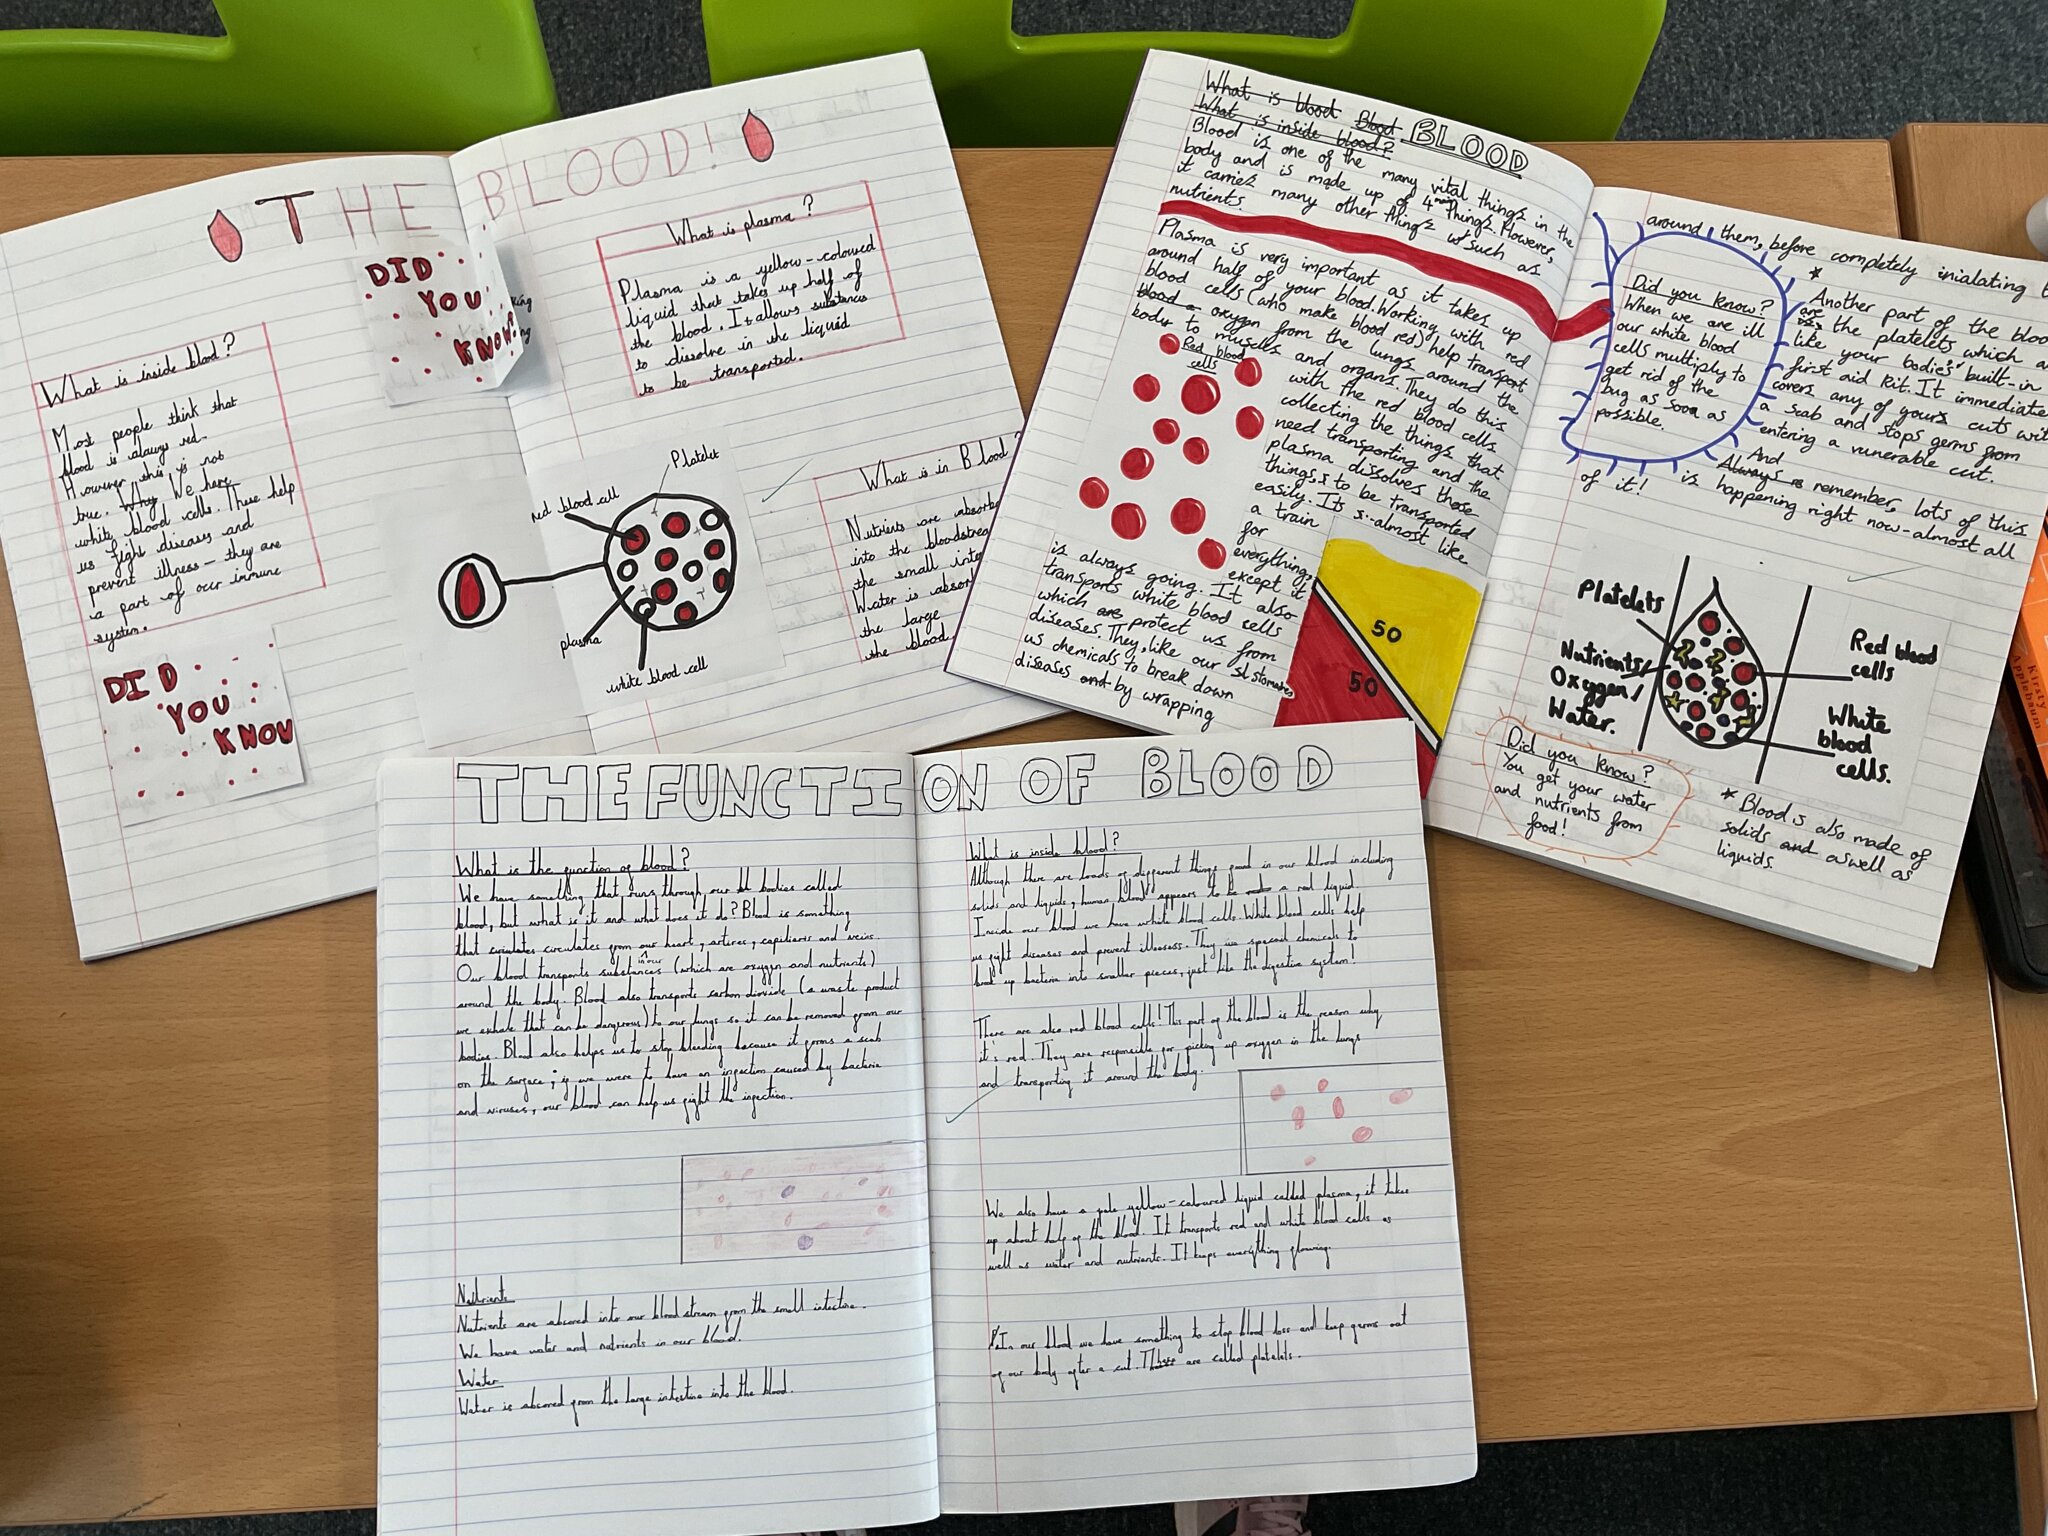 THE BLOOD!
What is inside blood?
Most people think that
blood is always red.
However this is not
true. Why We have
white blood cells. These help
us fight diseases and
prevent illness – they are
a part of our immune
system.
DID
YOU
KNOW
DID
YOU
KNOW?
What is plasma?
Plasma is a yellow-coloured
liquid that takes up half of
the blood. It allows substances
to dissolve in the liquid
to be transported.
Platelet
red blood cell
plasma
white blood cell
What is in Blood?
Nutrients are absorbe
into the bloodstrea
the small inte
Water is absor
the large
the blood.
What is blood Blood
What is inside blood? BLOOD
Blood is one of the many vital things in the
body and is made up of 4 main things. However,
it carries many other things such as
nutrients.
Plasma is very important as it takes up
around half of your blood. Working with red
blood cells (who make blood red) help transport
blood a oxygen from the lungs around the
body to muscles and organs. They do this
with the red blood cells
collecting the things that
need transporting and the
plasma dissolves those
things, to be transported
easily. Its almost like
a train
for
everything,
except it
is always going. It also
transports white blood cells
which are protect us from
diseases. They, like our stomaches
us chemicals to break down
diseases and by wrapping
Red blood
cells
50
50
around them, before completely inialating
Did you know?
When we are ill
our white blood
cells multiply to
get rid of the
bug as soon as
possible.
*
Another part of the bloo
are the platelets which a
like your bodies' built-in
first aid kit. It immediate
covers any of yours cuts wit
a scab and stops germs from
entering a vunerable cut.
And
Always is remember, lots of this
is happening right now-almost all
of it!
Platelets
Nutrients/
Oxygen/
Water.
Red blood
cells
White
blood
cells.
Did you know?
You get your water
and nutrients from
food!
* Blood is also made of
solids and aswell as
liquids.
Kirsty
Applebaum
THE FUNCTION OF BLOOD
What is the function of blood?
We have something that runs through our bl bodies called
blood, but what is it and what does it do? Blood is something
that circulates circulates from our heart, artires, capiliaris and veins.
Our blood transports substances in our (which are oxygen and nutrients)
around the body. Blood also transports carbon dioxide (a waste product
we exhale that can be dangerous) to our lungs so it can be removed from our
bodies. Blood also helps us to stop bleeding because it forms a scab
on the surface; if we were to have an infection caused by bacteria
and viruses, our blood can help us fight the infection.
Nutrients
Nutrients are absored into our blood stream from the small intestine.
We have water and nutrients in our blood.
Water
Water is absored from the large intestine into the blood.
What is inside blood?
Although there are loads of different things found in our blood including
solids and liquids, human blood appears to be a red liquid.
Inside our blood we have white blood cells. White blood cells help
us fight diseases and prevent illnesses. They use special chemicals to
break up bacteria into smaller pieces, just like the digestive system!
There are also red blood cells! This part of the blood is the reason why
it's red. They are responsible for picking up oxygen in the lungs
and transporting it around the body.
We also have a pale yellow-coloured liquid called plasma, it takes
up about half of the blood. It transports red and white blood cells as
well as water and nutrients. It keeps everything flowing.
In our blood we have something to stop blood loss and keep germs out
of our body after a cut. These are called platelets.